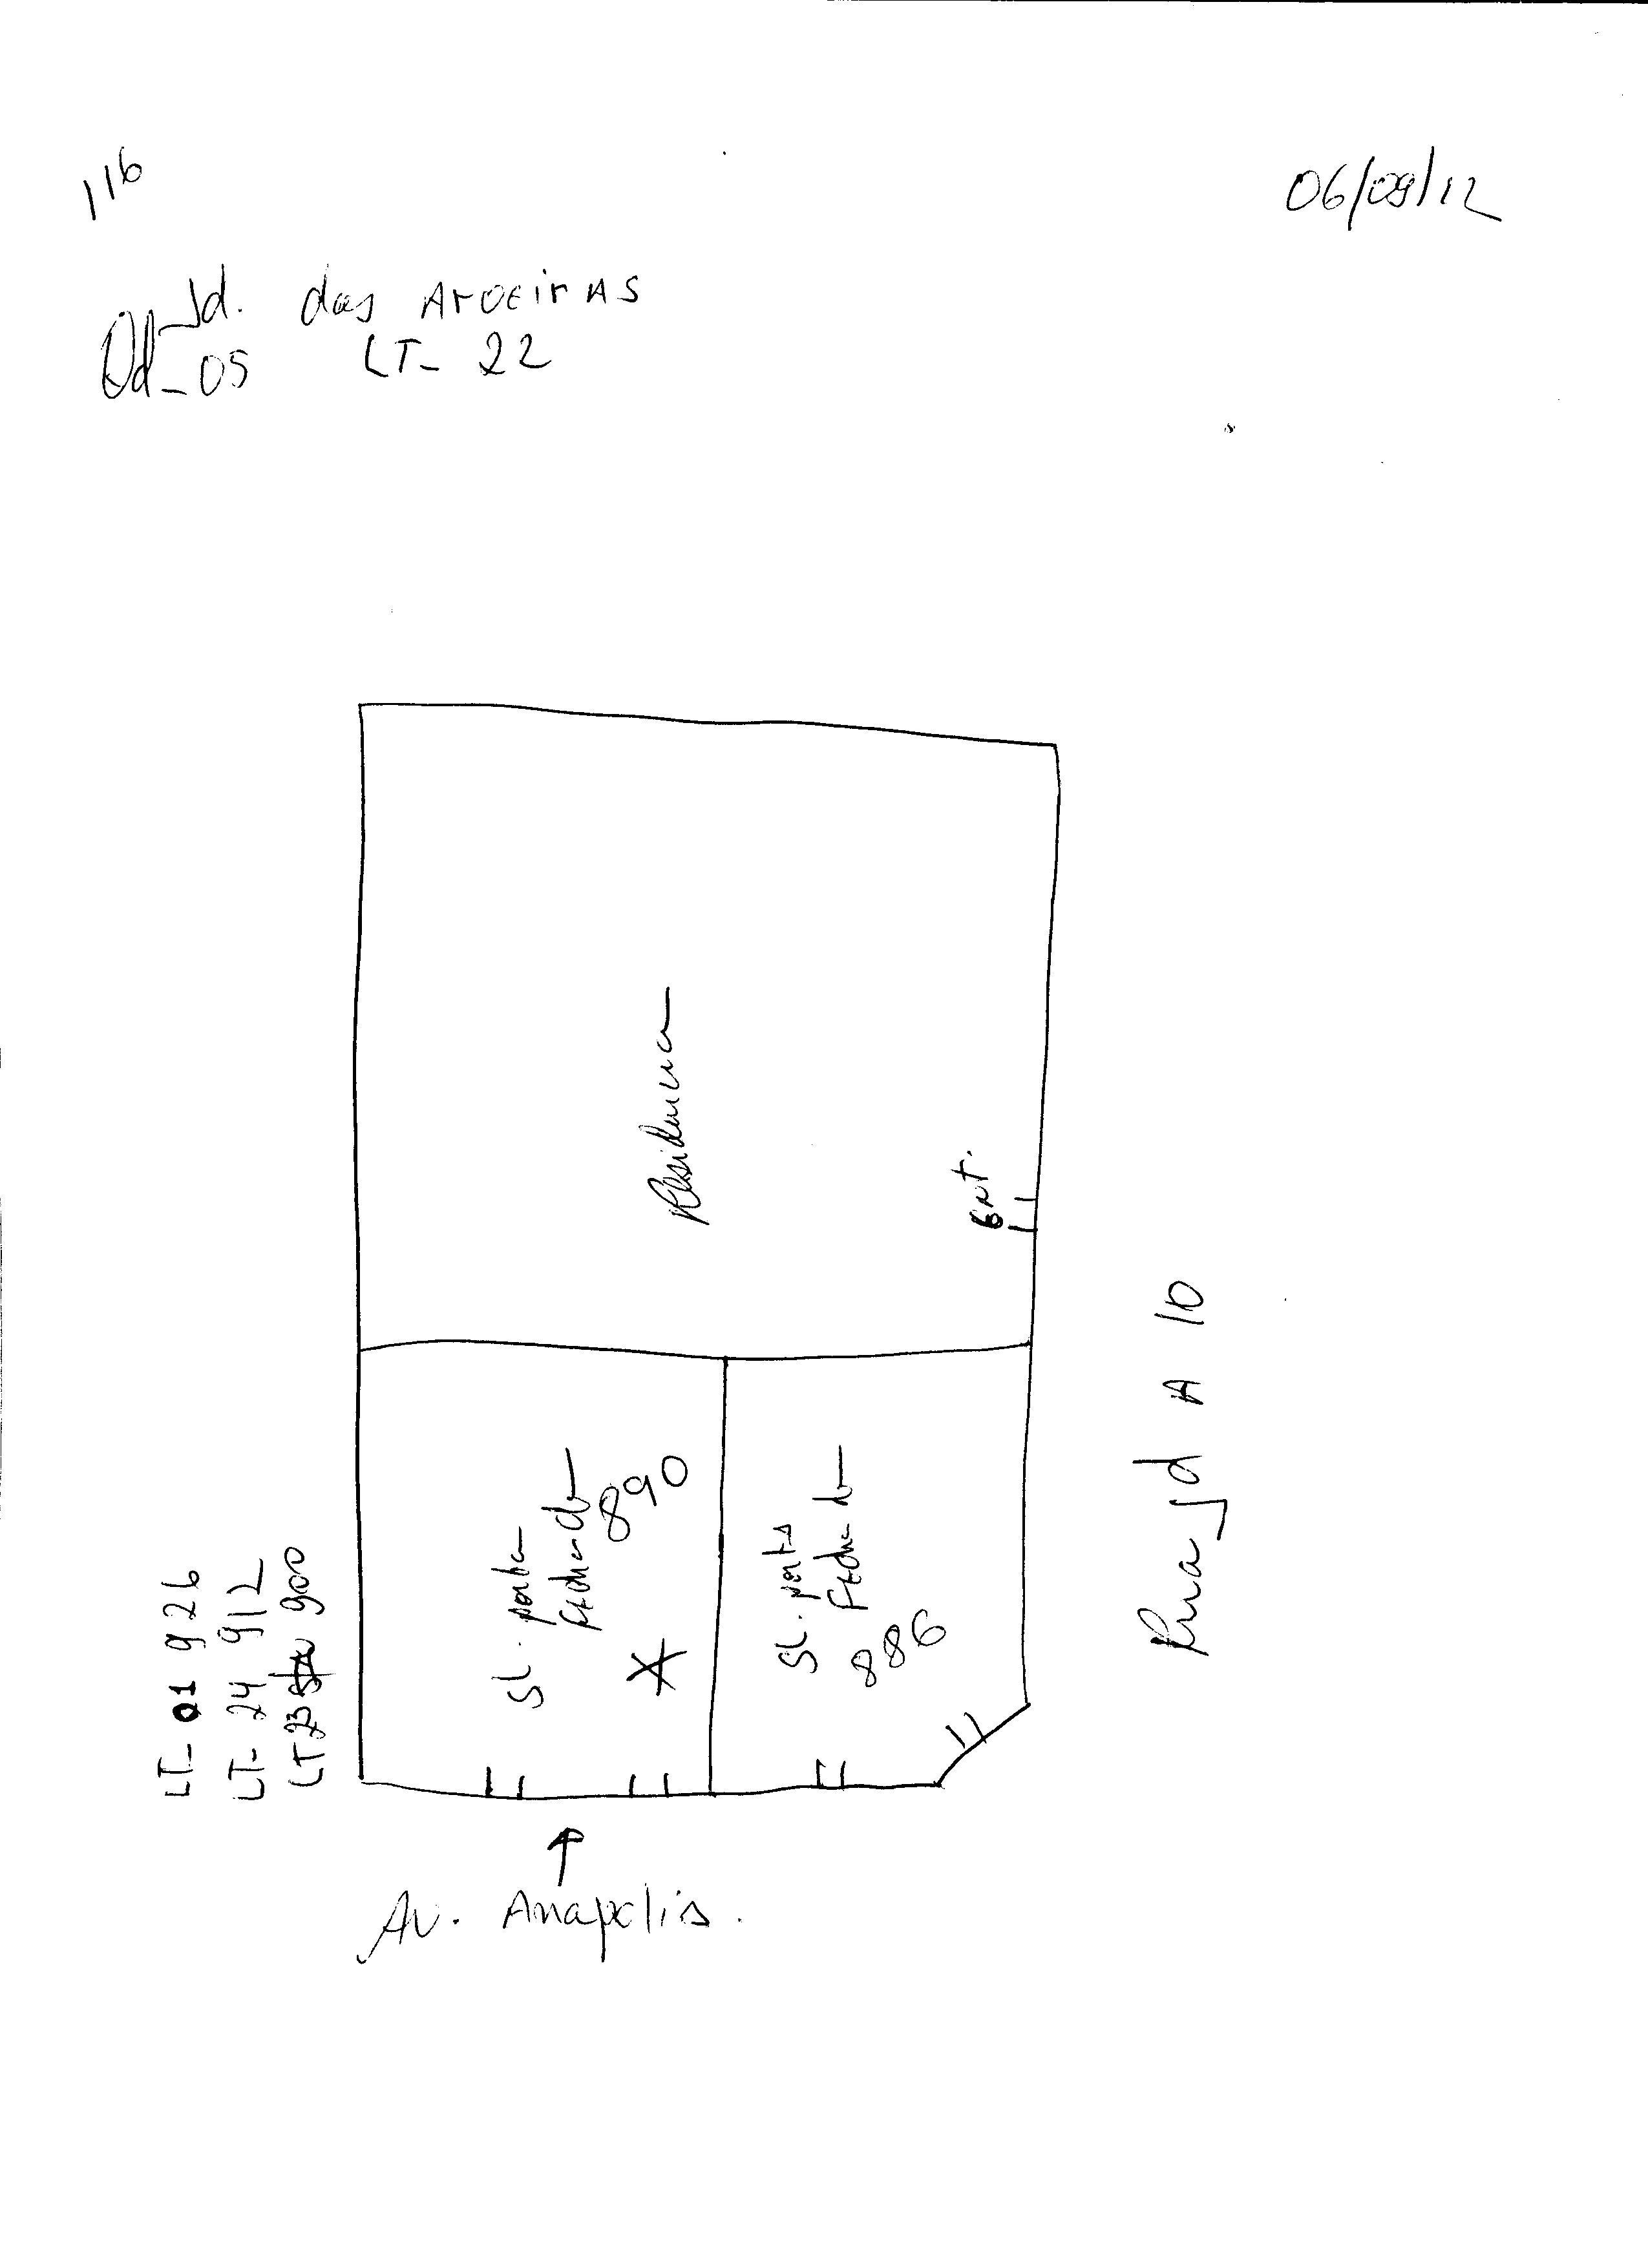 116
06/09/12
Jd. das AroeirAS
Qd_05 LT_ 22
Residencia
Ent.
LT_ 01 926
LT- 24 912
LT 23 900
SL. porta
Fechada
890
SL. porta
Fechada
886
Rua Jd A 10
Av. Anapolis.